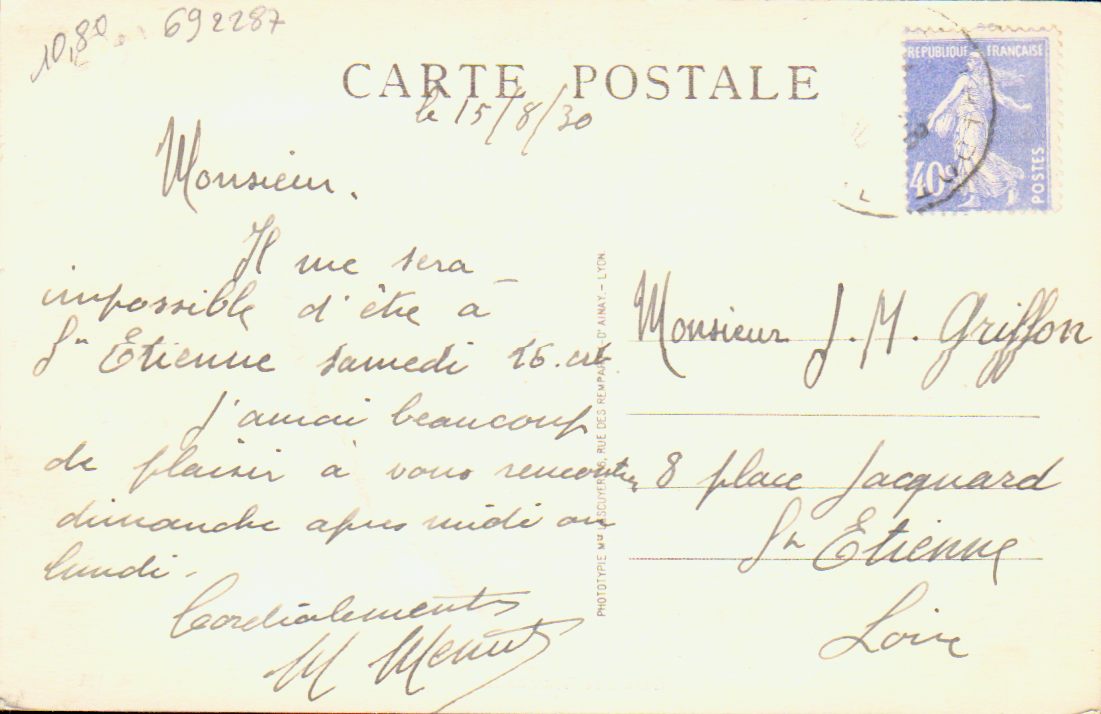 10,80
692287
CARTE POSTALE
le 15/8/30
Monsieur.
Il me sera
impossible d'être à
St Etienne samedi 16. crt
J'aurai beaucoup
de plaisir à vous rencontrer
dimanche après midi ou
lundi.
Cordialement
RÉPUBLIQUE FRANÇAISE
40c
POSTES
PHOTOTYPIE Mce LESCUYER RUE DES REMPARTS D'AINAY. – LYON
Monsieur J. M. Griffon
8 place Jacquard
St Etienne
Loire